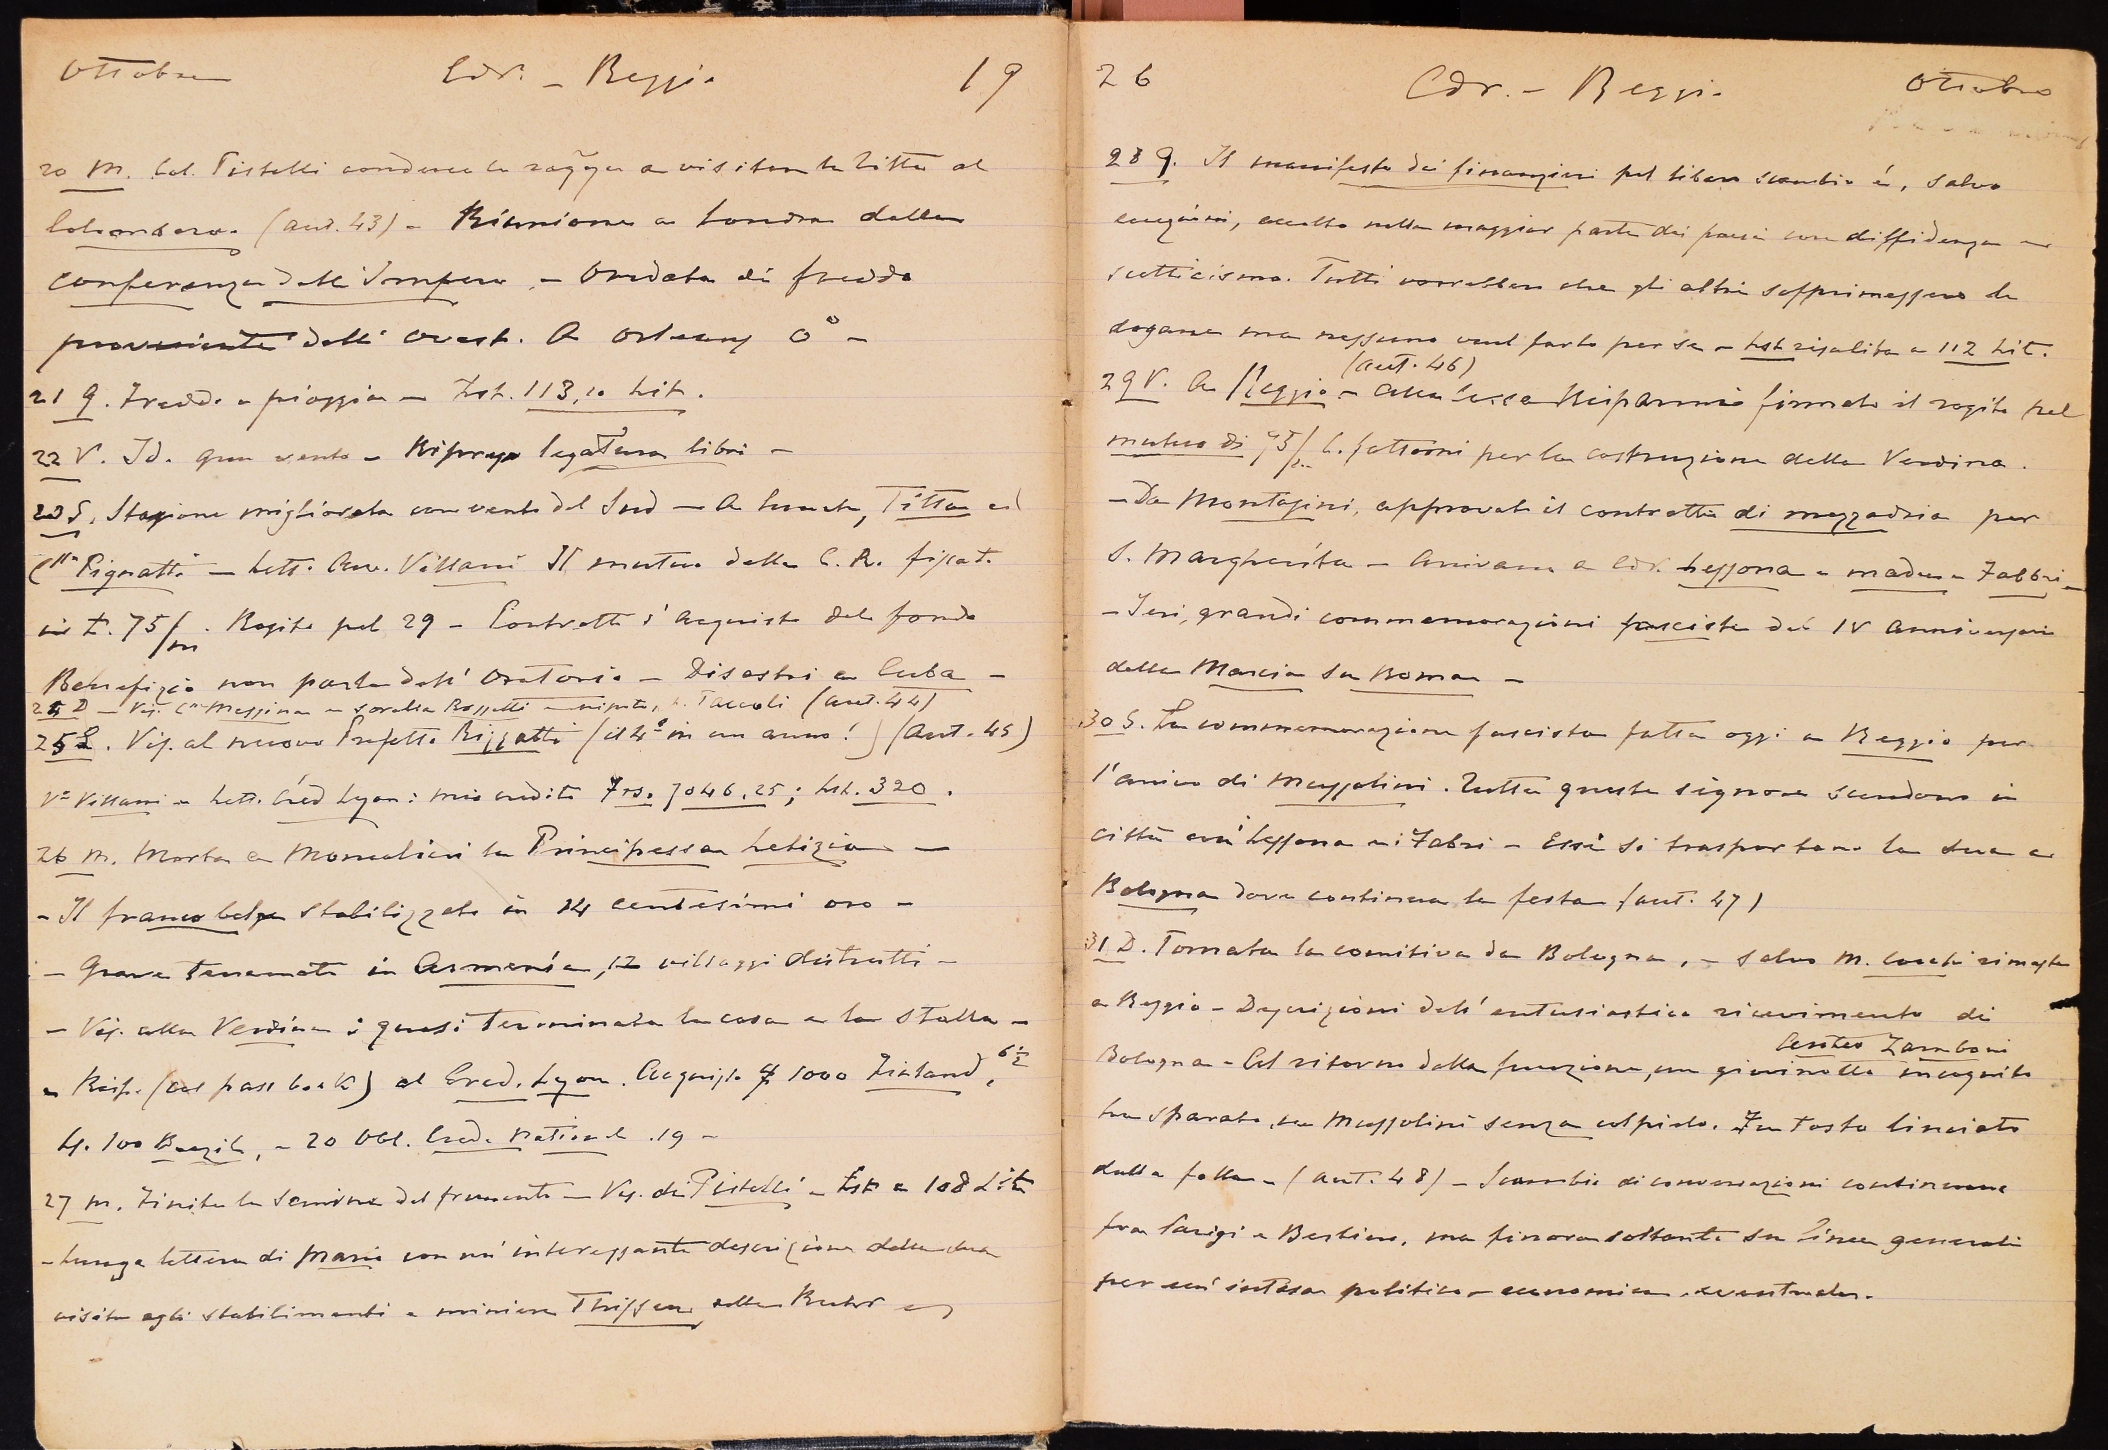 Ottobre Cdr. - Reggio 19
20 M. Col. Pistelli conduce le ragazze a visitare la Città al
Colombaro. (aut. 43) - Riunione a Londra della
conferenza dell'Impero - Ondata di freddo
proveniente dall'ovest. A Orleans 0° -
21 G. Freddo e pioggia - Lst. 113,10 Lit.
22 V. Id. gran vento - Ripresa legatura libri -
23 S. Stagione migliorata con vento del Sud - A lunch, Titta e il
Pignatti - Lett. Avv. Villani Il mutuo della C. R. fissato
in L. 75/m. Rogito pel 29 - Contratto d'acquisto del fondo
Benefizio non parla dell'Oratorio - Disastri a Cuba -
24 D - Vis. Messina e sorella Rossetti nipote, Taccoli (aut. 44)
25 L. Vis. al nuovo Prefetto Rizzatti (il 4° in un anno!) (aut. 45)
Villani - Lett. Créd Lyon: mio credito Frs. 7046.25; Lst. 320.
26 M. Morta a Moncalieri la Principessa Letizia -
- Il franco belga stabilizzato in 14 centesimi oro -
- Grave terremoto in Armenia, 12 villaggi distrutti -
- Vis. alla Verdina: quasi terminata la casa e la stalla -
- Risp. (col pass book) al Cred. Lyon. Acquisto $ 1000 Finland, 6 ½
L. 100 Brazil, - 20 Obl. Cred. National .19 -
27 M. Finita la semina del frumento - Vis. di Pistelli - Lst a 108 Lit
- Lunga lettera di Mario con un'interessante descrizione della sua
visita agli stabilimenti e miniere Thissen, nella Ruhr
26 Cdr. - Reggio Ottobre
28 G. Il manifesto dei finanzieri pel libero scambio è, salvo
eccezioni, accolto nella maggior parte dei paesi con diffidenza e
scetticismo. Tutti vorrebbero che gli altri sopprimessero le
dogane ma nessuno vuol farlo per se - Lst risalita a 112 Lit.
(aut. 46)
29 V. A Reggio - Alla Cassa Risparmio firmato il rogito pel
mutuo di 75/m C. Fattorini per la costruzione della Verdina.
- Da Montasini, approvato il contratto di mezzadria per
S. Margherita - Arrivano a Cdr. Lessona e madre e Fabbri -
- Ieri, grandi commemorazioni fasciste del IV anniversario
della Marcia su Roma -
30 S. La commemorazione fascista fatta oggi a Reggio per
l'arrivo di Mussolini. Tutte queste signore scendono in
città coi Lessona e i Fabri - Essi si trasportano la sera a
Bologna dove continua la festa (aut. 47)
31 D. Tornata la comitiva da Bologna, - salvo M. Cocchi rimasta
a Reggio - Descrizioni dell'entusiastico ricevimento di
Anteo Zamboni
Bologna - Al ritorno dalla funzione, un giovinotto incognito
ha sparato su Mussolini senza colpirlo. Fu tosto linciato
dalla folla - (aut. 48) - Scambio di conversazioni continuano
fra Parigi e Berlino, ma finora soltanto su linee generali
per un'intesa politico-economica eventuale.